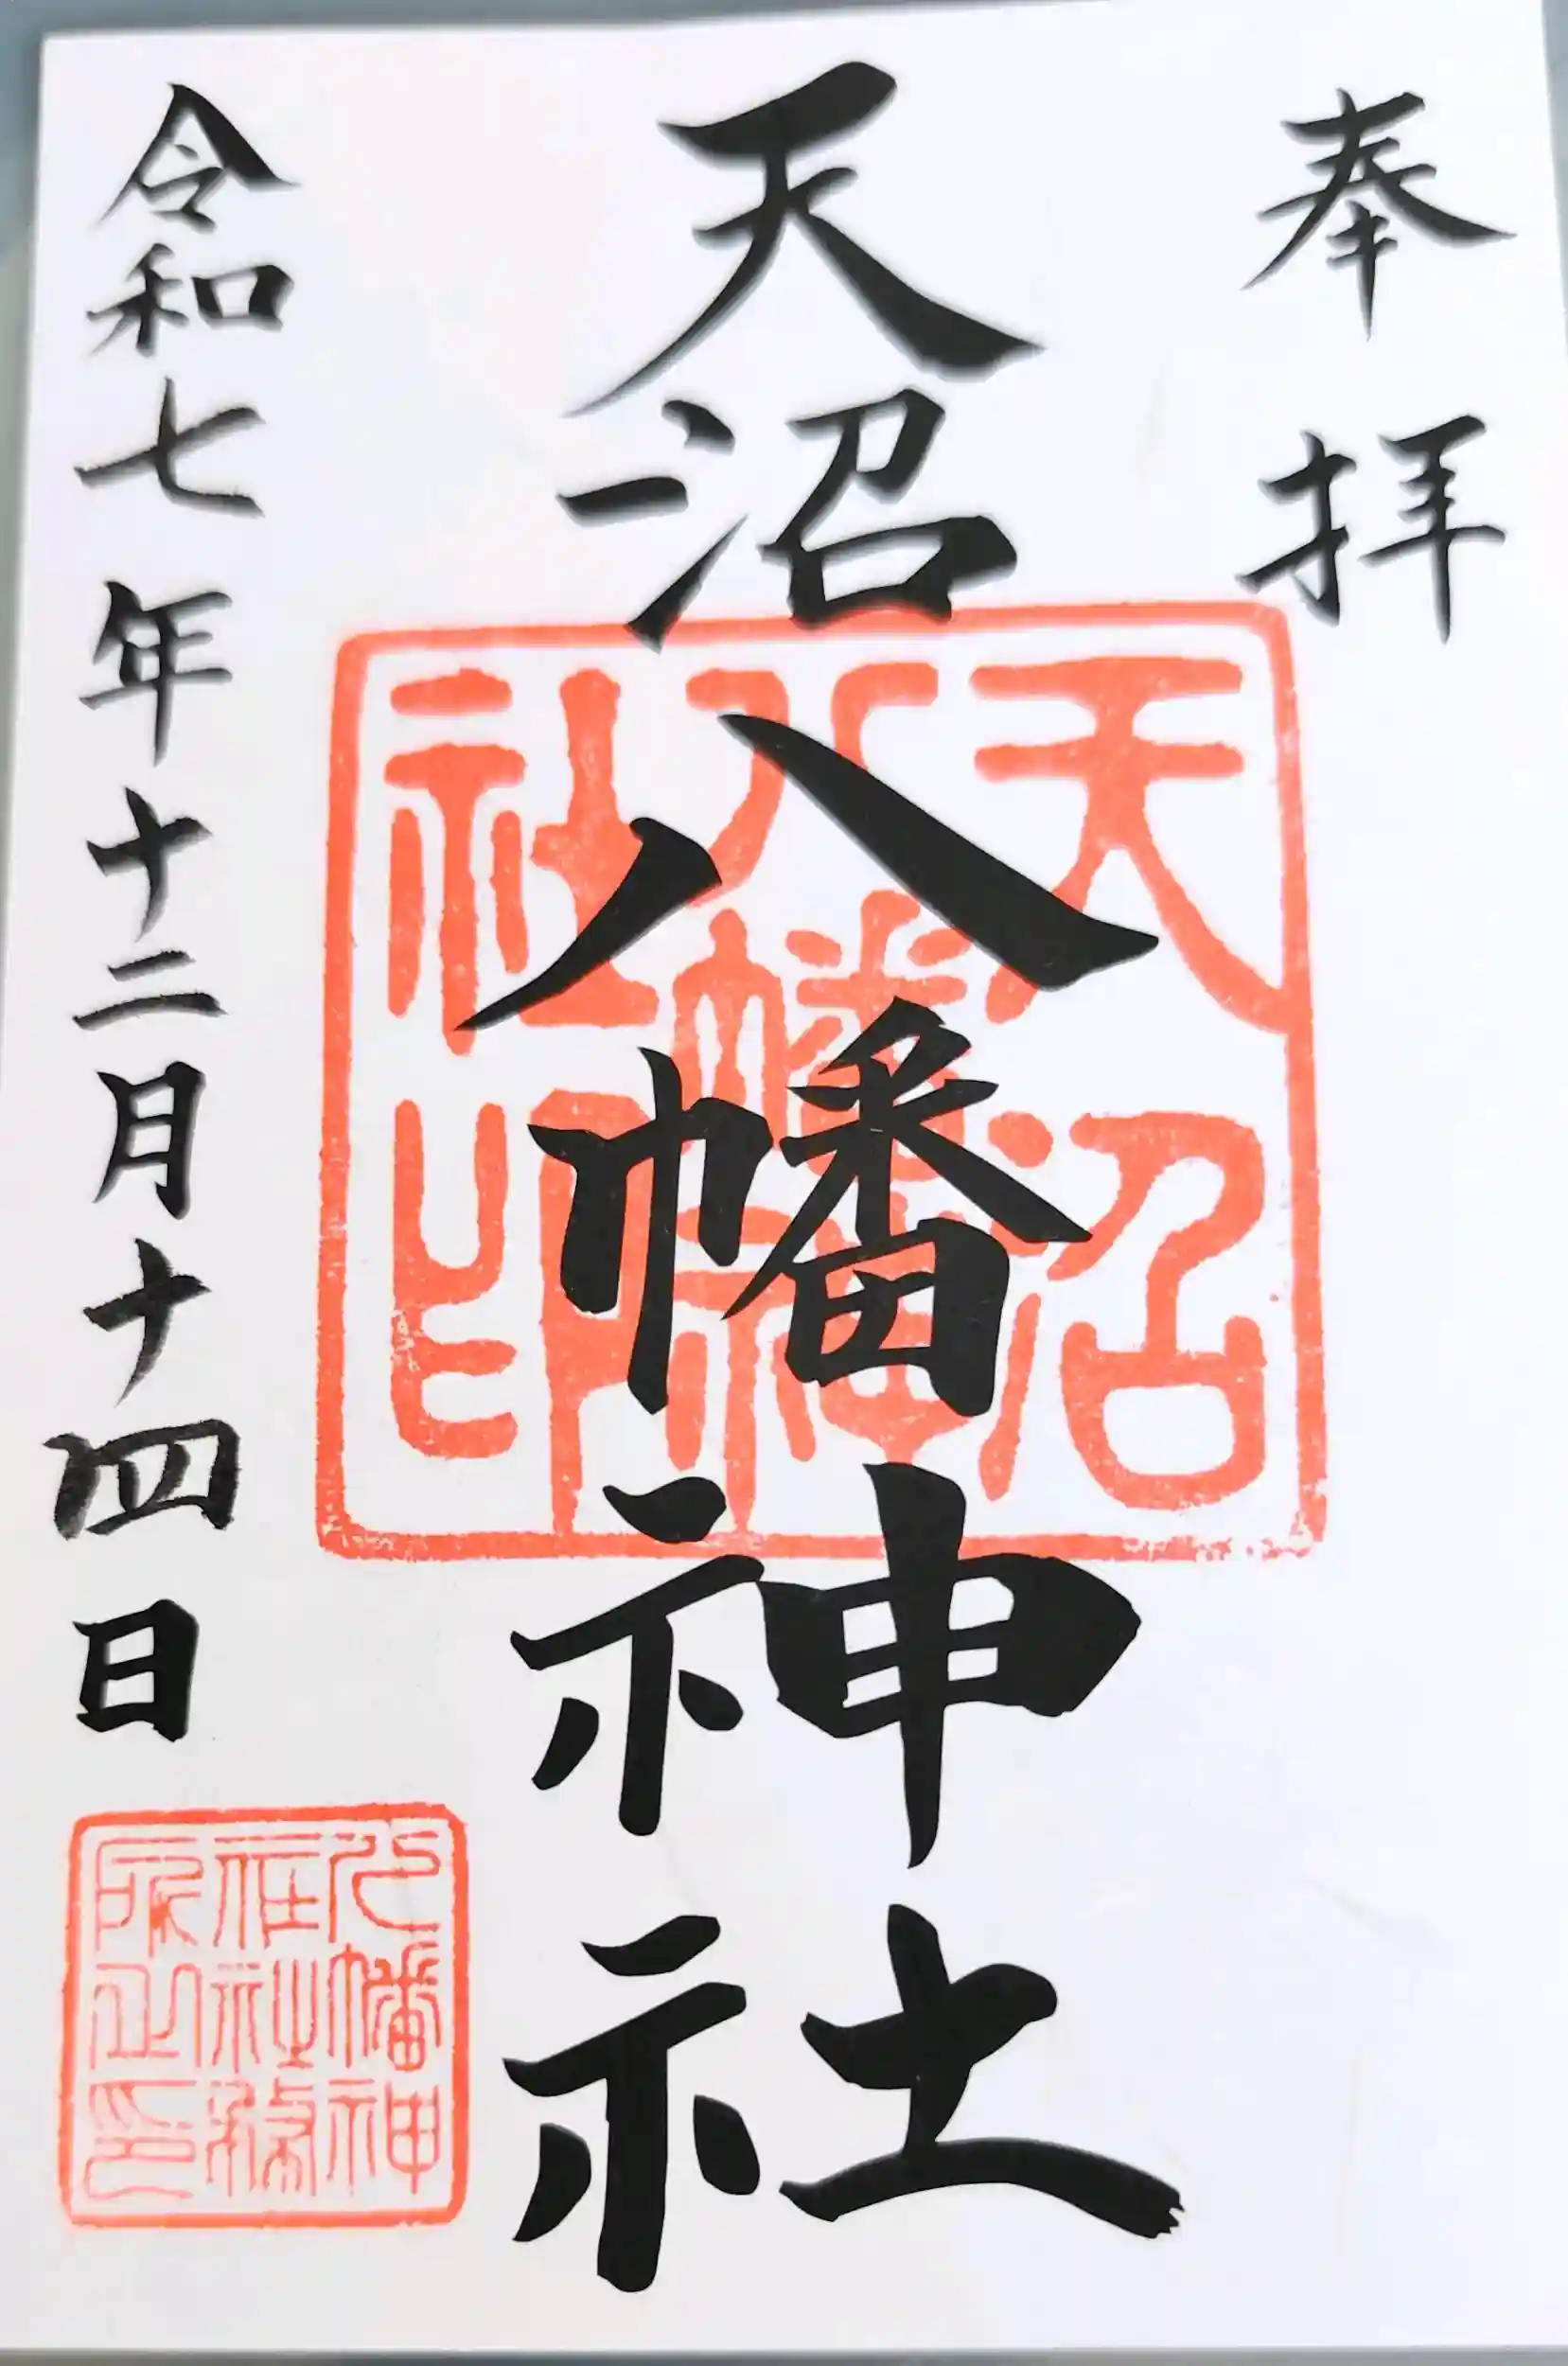 奉拝
天沼八幡神社
令和七年十二月十四日
天沼
八幡神
社印
八幡神
社社務
所之印